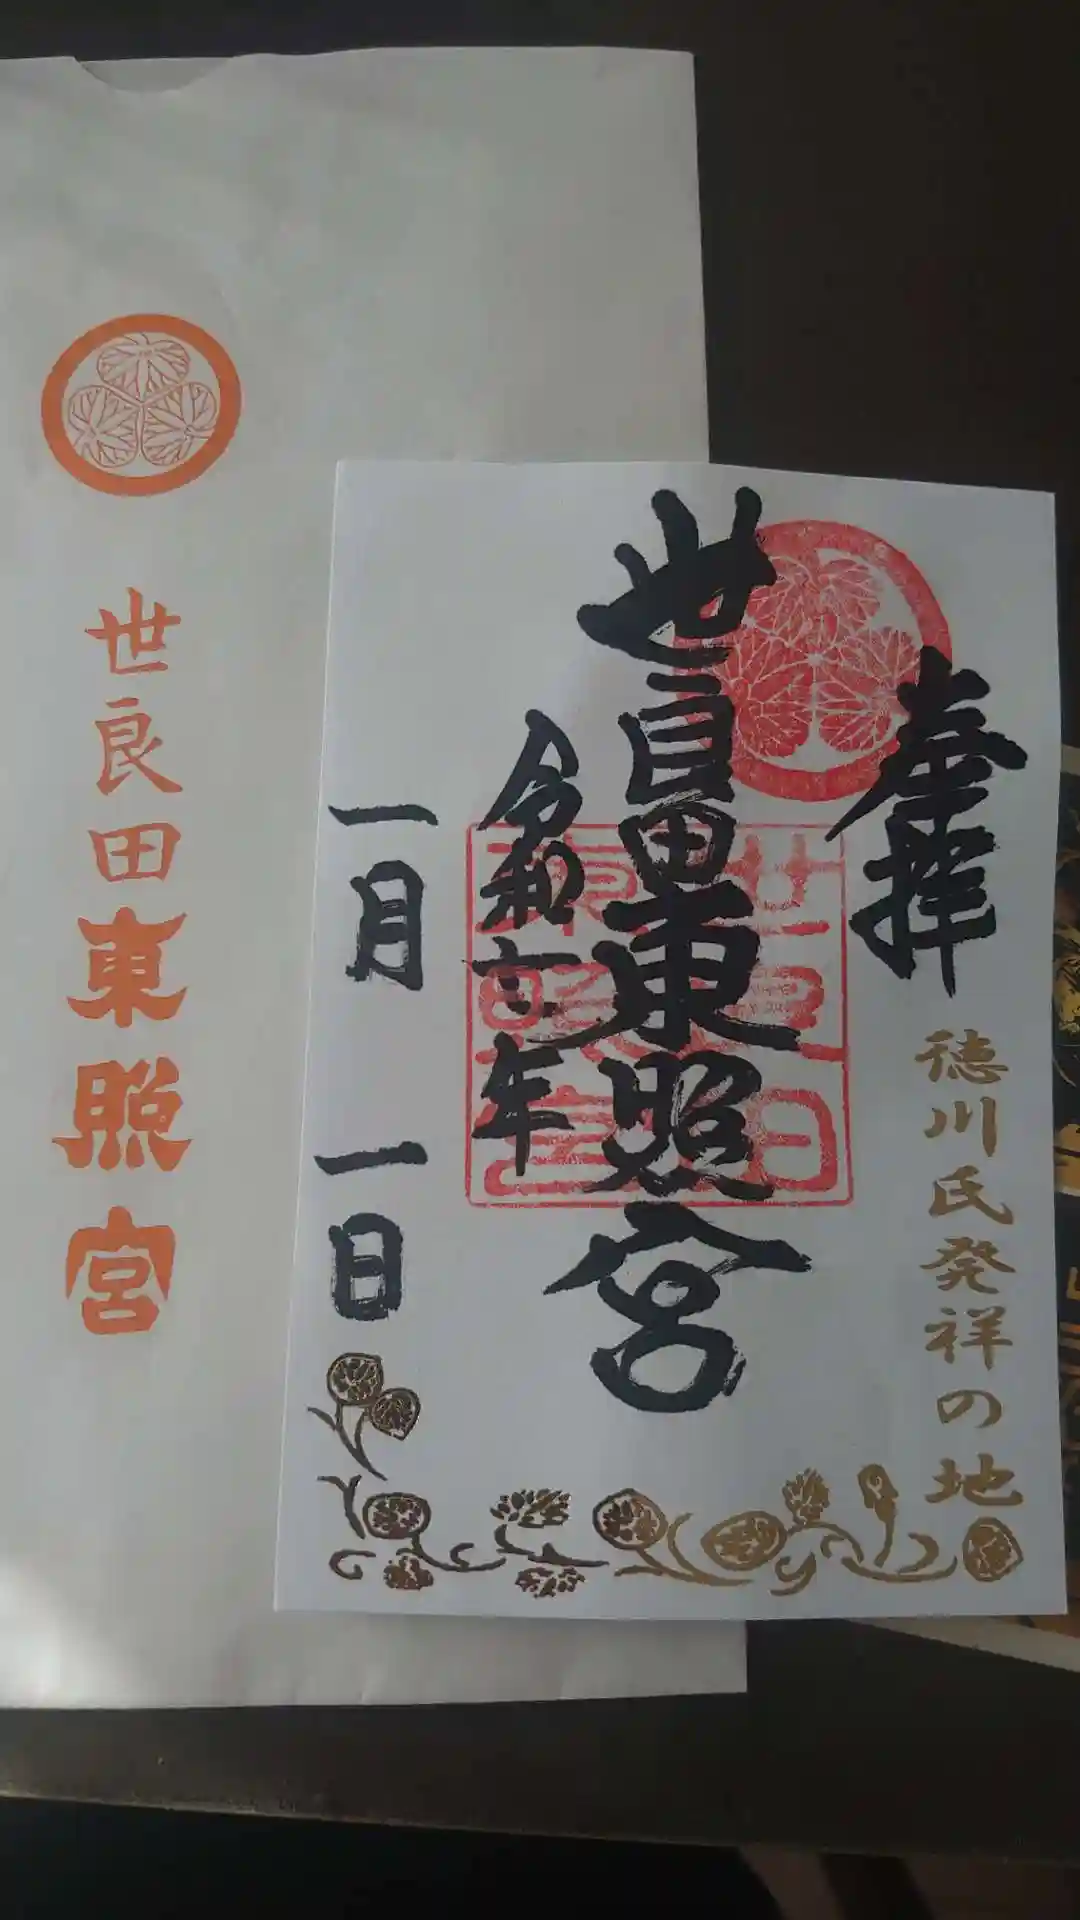 奉拝
徳川氏発祥の地
世良田東照宮
令和六年
一月一日
世良田東照宮